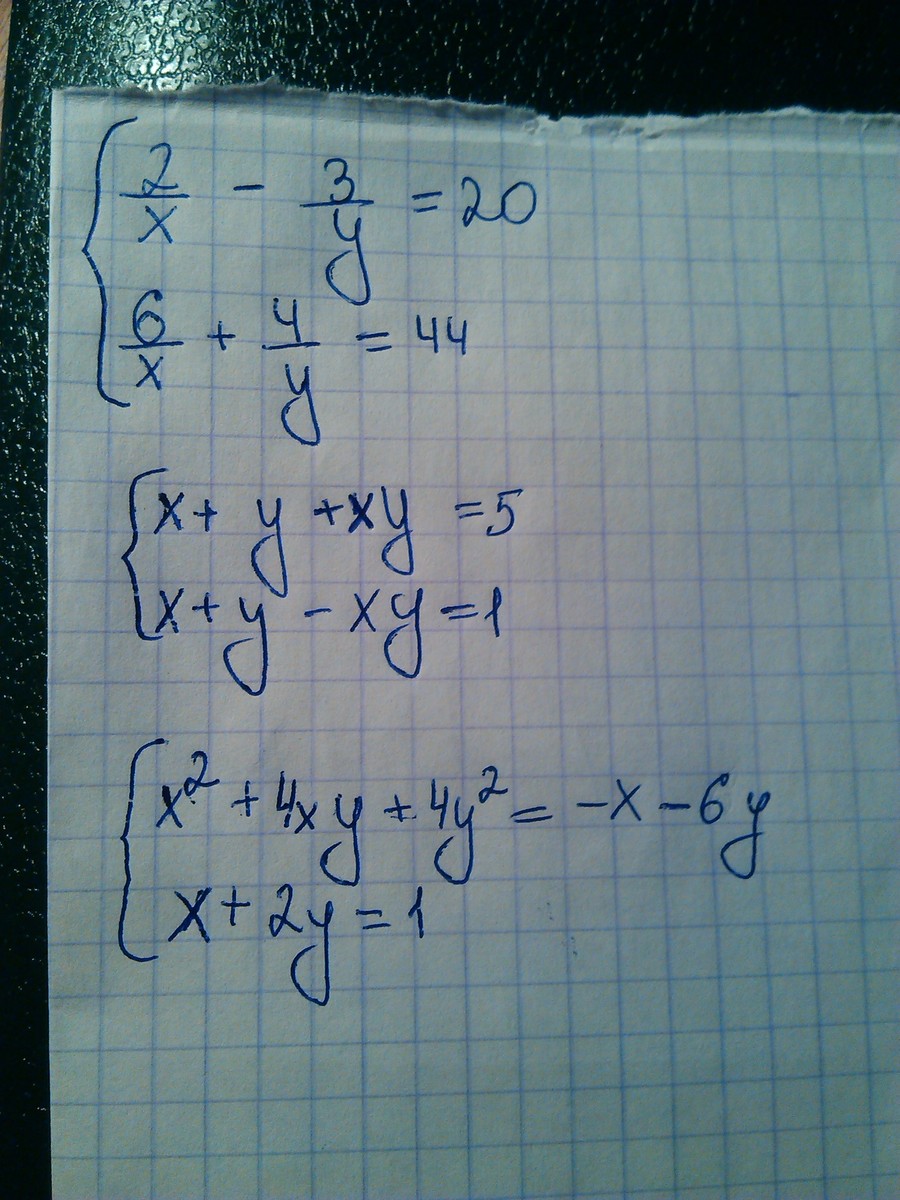 2/x - 3/y = 20
6/x + 4/y = 44
x + y + xy = 5
x + y - xy = 1
x² + 4xy + 4y² = -x - 6y
x + 2y = 1